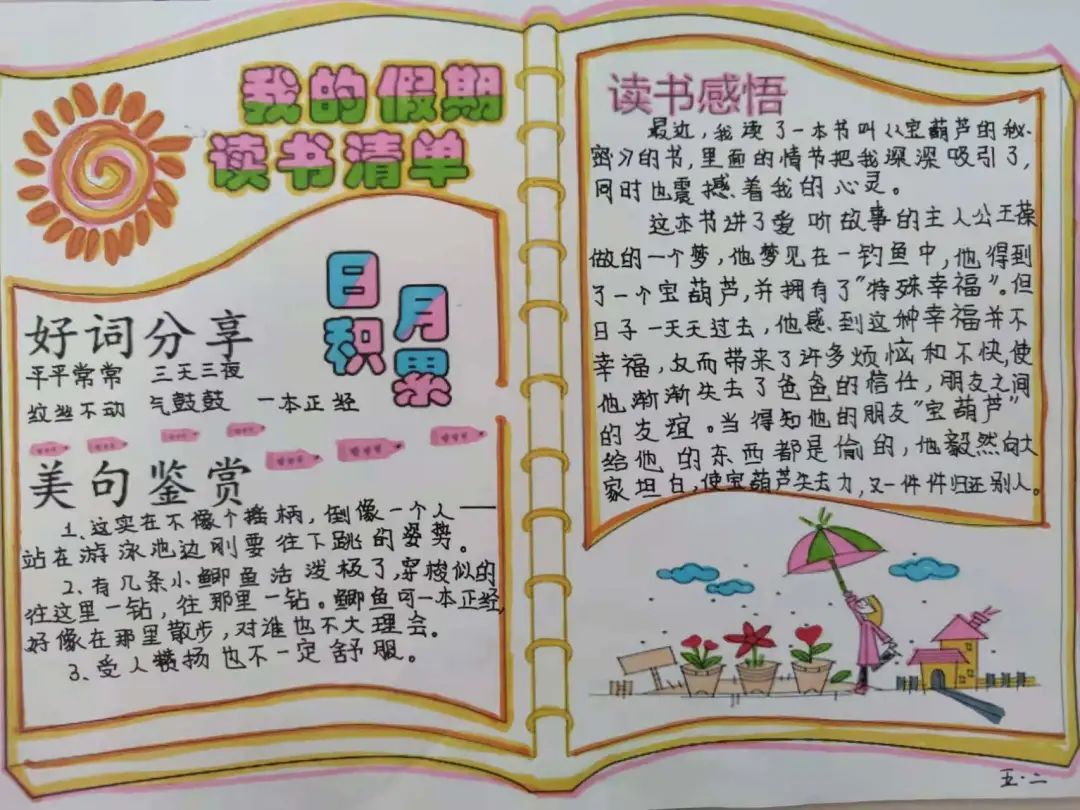 我的假期
读书清单
日积月累
好词分享
平平常常 三天三夜
纹丝不动 气鼓鼓 一本正经
美句鉴赏
1、这实在不像个摇柄,倒像一个人——
站在游泳池边刚要往下跳的姿势。
2、有几条小鲫鱼活泼极了,穿梭似的
往这里一钻,往那里一钻。鲫鱼可一本正经,
好像在那里散步,对谁也不大理会。
3、受人赞扬也不一定舒服。
读书感悟
最近,我读了一本书叫《宝葫芦的秘
密》的书,里面的情节把我深深吸引了,
同时也震撼着我的心灵。
这本书讲了爱听故事的主人公王葆
做的一个梦,他梦见在一钓鱼中,他得到
了一个宝葫芦,并拥有了"特殊幸福"。但
日子一天天过去,他感到这种幸福并不
幸福,反而带来了许多烦恼和不快,使
他渐渐失去了爸爸的信任,朋友之间
的友谊。当得知他的朋友"宝葫芦"
给他的东西都是偷的,他毅然向大
家坦白,使宝葫芦失去力,又一件件归还别人。
五·二